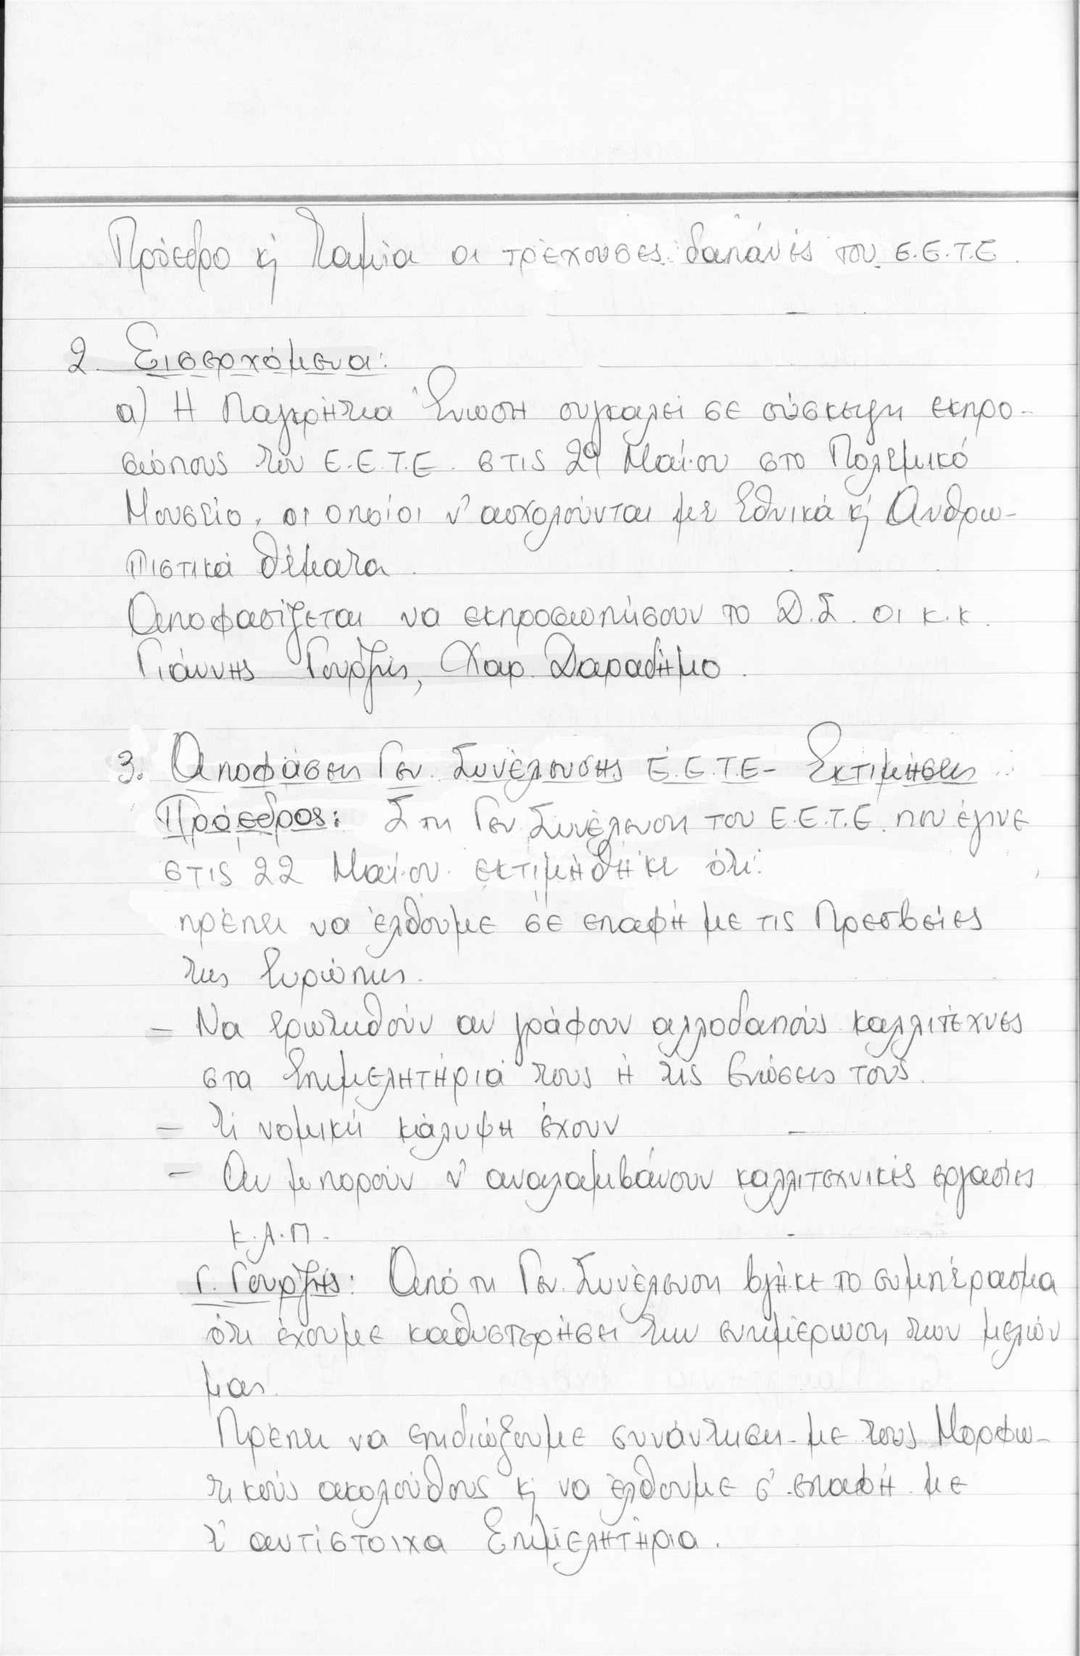 Πρόεδρο κ' Ταμία οι τρέχουσες δαπάνες του Ε.Ε.Τ.Ε.
2. Εισερχόμενα:
α) Η Παγκρήτια Ένωση συγκαλεί σε σύσκεψη εκπρο-
σώπους του Ε.Ε.Τ.Ε. στις 29 Μαΐου στο Πολεμικό
Μουσείο, οι οποίοι ν' ασχολούνται με Εθνικά κ' Ανθρω-
πιστικά θέματα.
Αποφασίζεται να εκπροσωπήσουν το Δ.Σ. οι κ.κ.
Γιάννης Γουρζής, Χαρ. Δαραδήμο.
3. Αποφάσεις Γεν. Συνέλευσης Ε.Ε.Τ.Ε - Εκτιμήσεις
Πρόεδρος: Στη Γεν. Συνέλευση του Ε.Ε.Τ.Ε. που έγινε
στις 22 Μαΐου εκτιμήθηκε ότι:
πρέπει να έλθουμε σε επαφή με τις Πρεσβείες
της Ευρώπης.
- Να ερωτηθούν αν γράφουν αλλοδαπούς καλλιτέχνες
στα Επιμελητήριά τους ή τις Ενώσεις τους.
- Τι νομική κάλυψη έχουν
- Αν μπορούν ν' αναλαμβάνουν καλλιτεχνικές εργασίες
κ.λ.π.
Γ. Γουρζής: Από τη Γεν. Συνέλευση βγήκε το συμπέρασμα
ότι έχουμε καθυστερήσει την ενημέρωση των μελών
μας.
Πρέπει να επιδιώξουμε συνάντηση με τους Μορφω-
τικούς ακολούθους κ' να έλθουμε σ' επαφή με
τ' αντίστοιχα Επιμελητήρια.